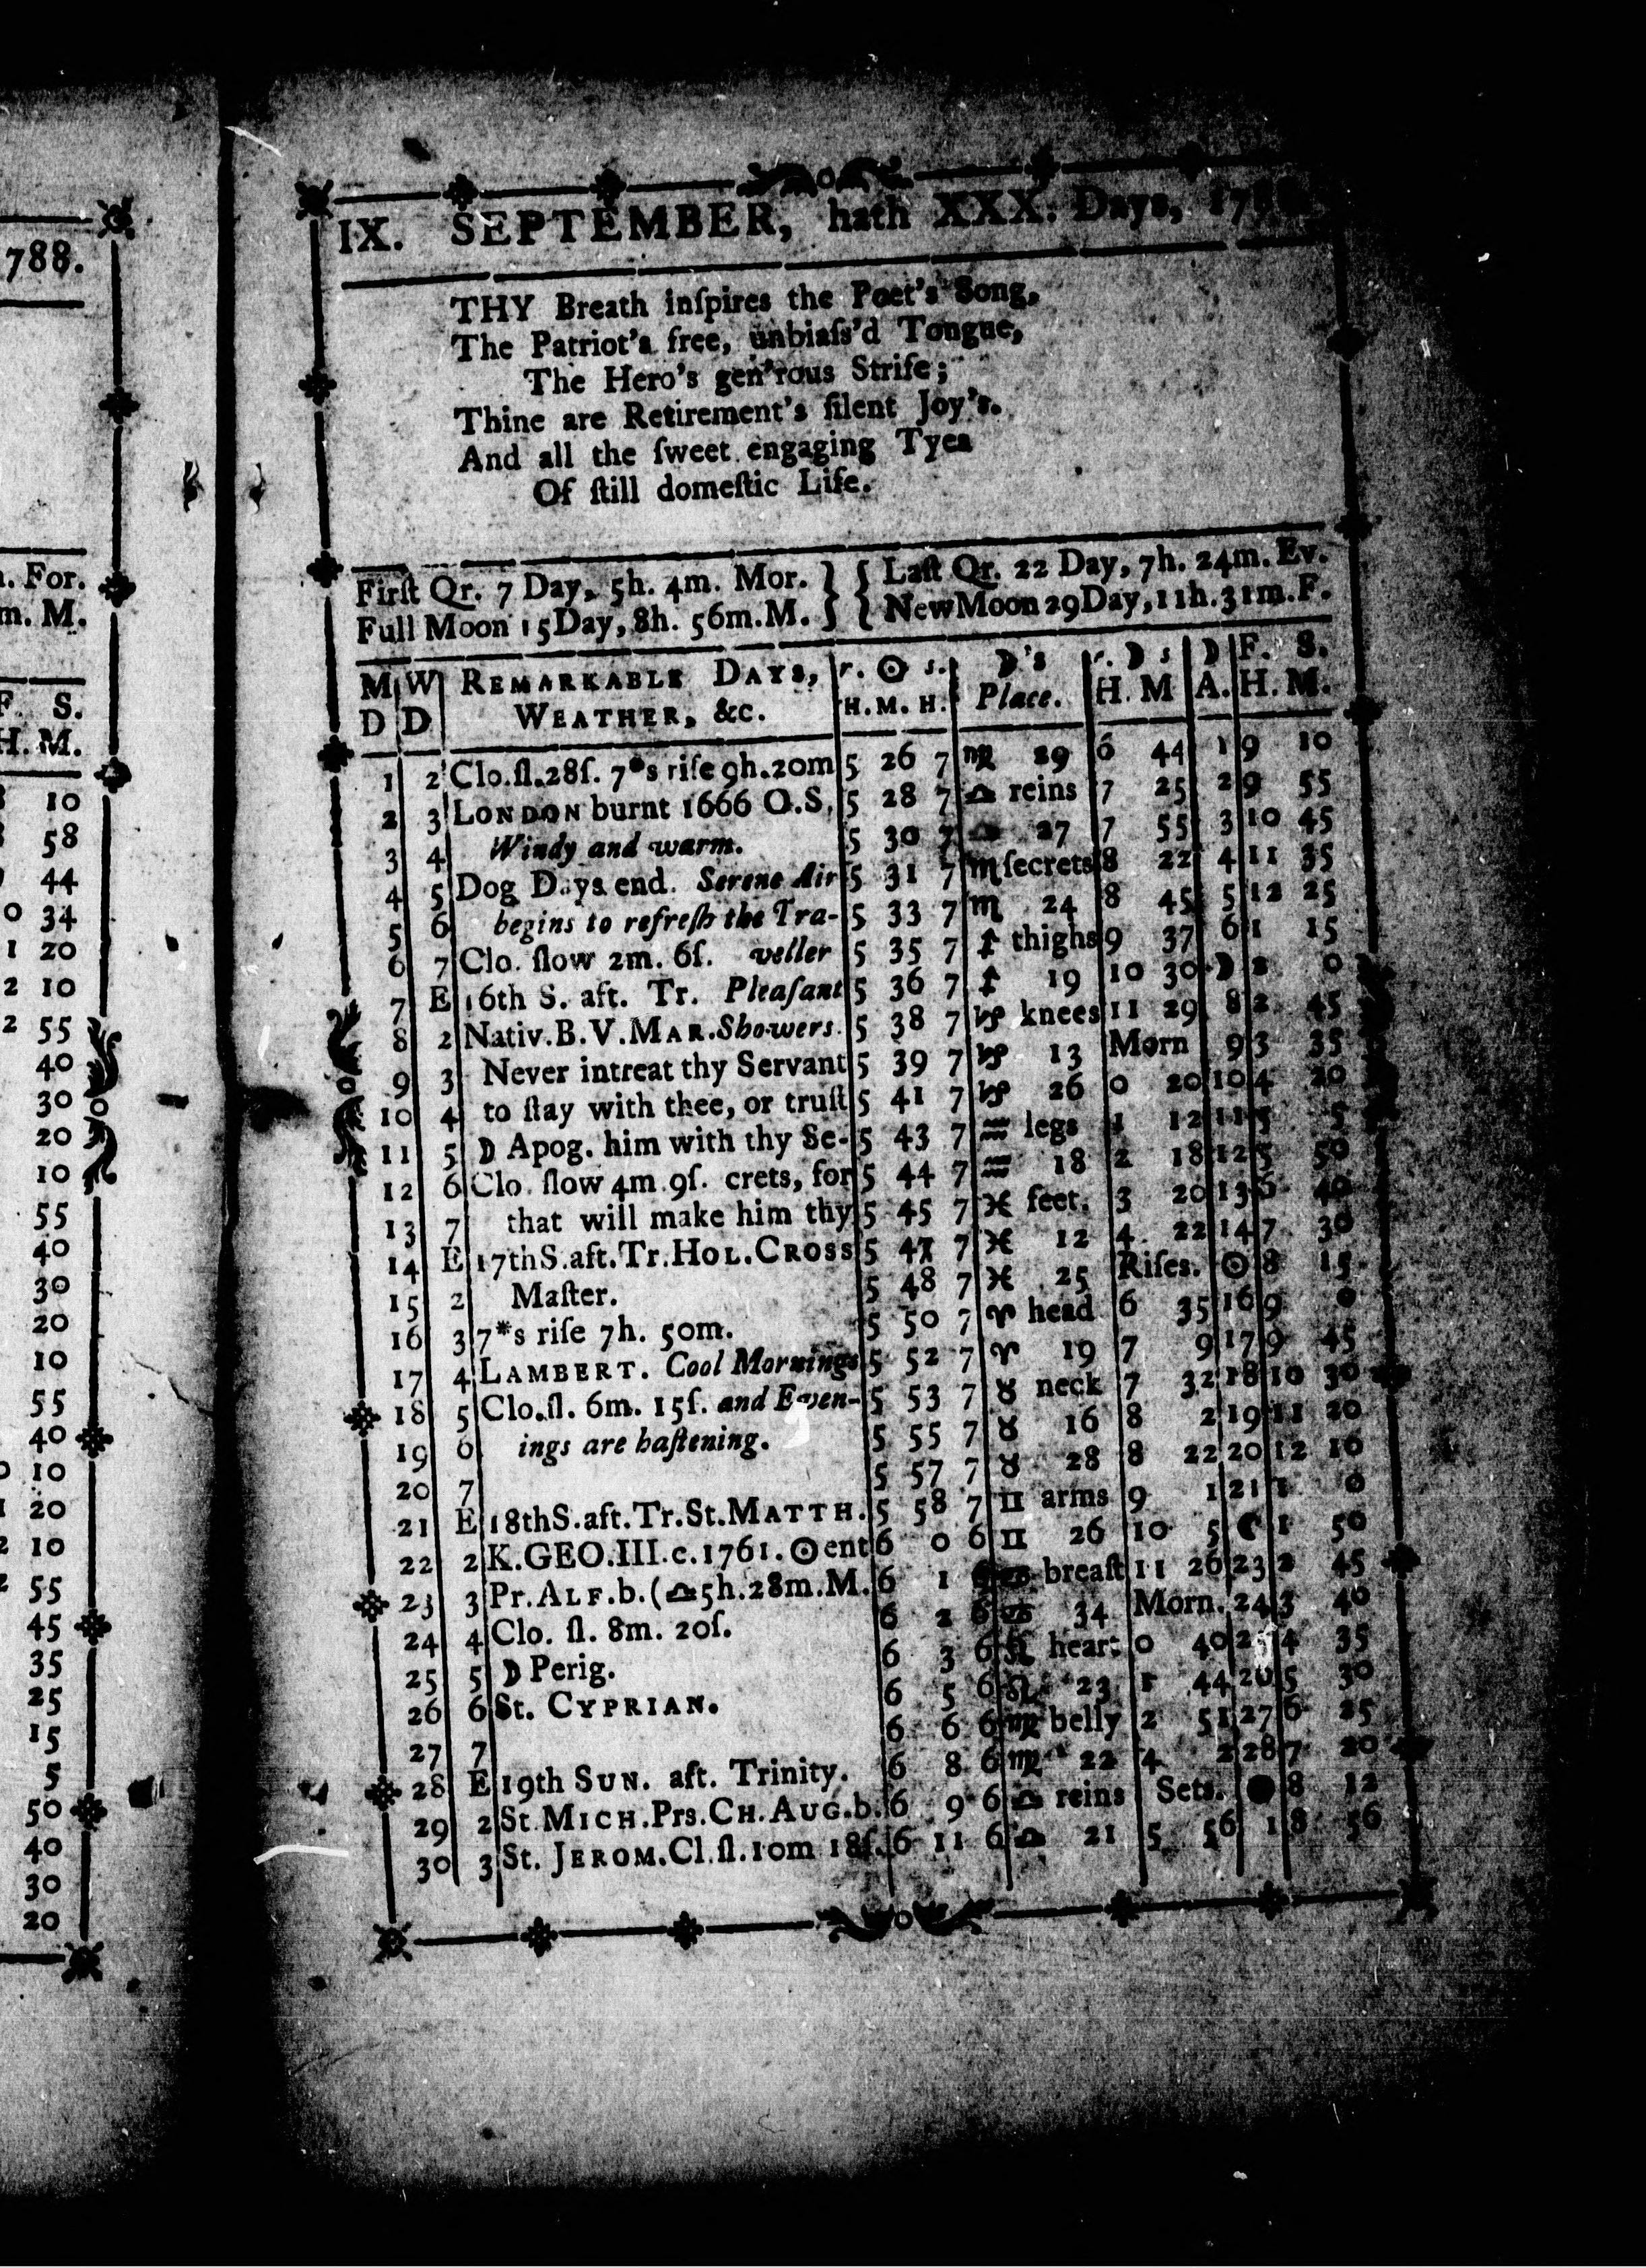 788.
. For.
m. M.
F. S.
H. M.
10
58
44
0 34
1 20
2 10
2 55
40
30
20
10
55
40
30
20
10
55
40
10
20
2 10
2 55
45
35
25
15
5
50
40
30
20
IX. SEPTEMBER, hath XXX. Days,
THY Breath inſpires the Poet's Song,
The Patriot's free, unbiaſs'd Tongue,
The Hero's gen'rous Strife;
Thine are Retirement's ſilent Joy's.
And all the ſweet engaging Tyes
Of ſtill domeſtic Life.
Firſt Qr. 7 Day, 5h. 4m. Mor. } { Laſt Qr. 22 Day, 7h. 24m. Ev.
Full Moon 15Day, 8h. 56m.M. } { NewMoon 29Day, 11h. 31m. F.
M W REMARKABLE DAYS, r. ☉ s. ☽'s r. ☽ s ☽ F. S.
D D WEATHER, &c. H. M. H. Place. H. M A. H. M.
1 2 Clo.ſl.28ſ. 7*s riſe 9h.20m 5 26 7 ♍ 29 6 44 1 9 10
2 3 LONDON burnt 1666 O.S. 5 28 7 ♎ reins 7 25 2 9 55
3 4 Windy and warm. 5 30 7 ♎ 27 7 55 3 10 45
4 5 Dog Days end. Serene Air 5 31 7 ♏ ſecrets 8 22 4 11 35
5 6 begins to refreſh the Tra- 5 33 7 ♏ 24 8 45 5 12 25
6 7 Clo. ſlow 2m. 6ſ. veller 5 35 7 ♐ thighs 9 37 6 1 15
7 E 16th S. aft. Tr. Pleaſant 5 36 7 ♐ 19 10 30 ☽ 2 0
8 2 Nativ. B. V. MAR. Showers. 5 38 7 ♑ knees 11 29 8 2 45
9 3 Never intreat thy Servant 5 39 7 ♑ 13 Morn 9 3 35
10 4 to ſtay with thee, or truſt 5 41 7 ♑ 26 0 20 10 4 20
11 5 ☽ Apog. him with thy Se- 5 43 7 ♒ legs 1 12 11 5 5
12 6 Clo. ſlow 4m. 9ſ. crets, for 5 44 7 ♒ 18 2 18 12 5 50
13 7 that will make him thy 5 45 7 ♓ feet. 3 20 13 6 40
14 E 17th S. aft. Tr. HOL. CROSS 5 47 7 ♓ 12 4 22 14 7 30
15 2 Maſter. 5 48 7 ♓ 25 Riſes. ☉ 8 15
16 3 7*s riſe 7h. 50m. 5 50 7 ♈ head 6 35 16 9 0
17 4 LAMBERT. Cool Mornings 5 52 7 ♈ 19 7 9 17 9 45
18 5 Clo.ſl. 6m. 15ſ. and Even- 5 53 7 ♉ neck 7 32 18 10 30
19 6 ings are haſtening. 5 55 7 ♉ 16 8 2 19 11 20
20 7 5 57 7 ♉ 28 8 22 20 12 10
21 E 18thS.aft.Tr.St.MATTH. 5 58 7 ♊ arms 9 1 21 1 0
22 2 K.GEO.III.c.1761. ☉ ent 6 0 6 ♊ 26 10 5 ☾ 1 50
23 3 Pr. ALF. b. (♎ 5h.28m.M. 6 1 6 ♋ breaſt 11 26 23 2 45
24 4 Clo. ſl. 8m. 20ſ. 6 2 6 ♋ 34 Morn. 24 3 40
25 5 ☽ Perig. 6 3 6 ♌ heart 0 40 4 35
26 6 St. CYPRIAN. 6 5 6 ♌ 23 1 44 26 5 30
27 7 6 6 6 ♍ belly 2 51 27 6 25
28 E 19th SUN. aft. Trinity. 6 8 6 ♍ 22 4 2 28 7 20
29 2 St. MICH. Prs. CH. AUG. b. 6 9 6 ♎ reins Sets. ● 8 12
30 3 St. JEROM. Cl. ſl. 10m 18ſ. 6 11 6 ♎ 21 5 56 1 8 56